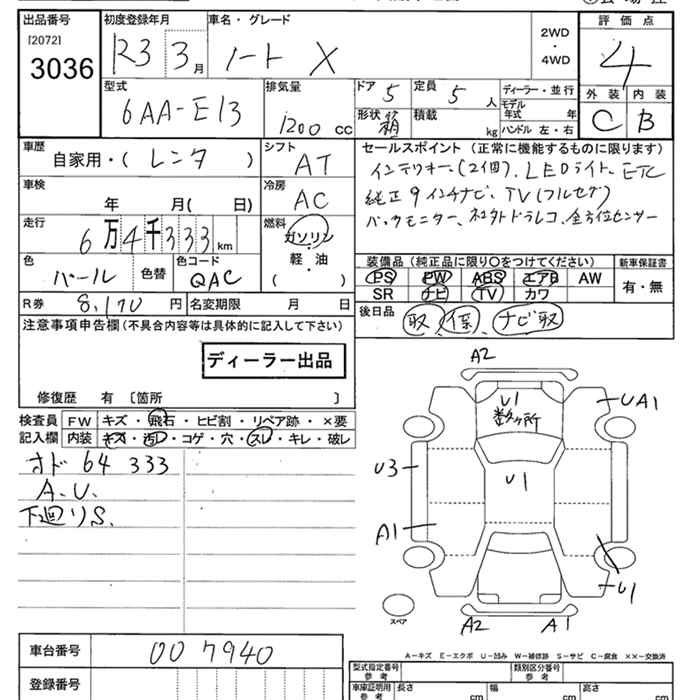 出品番号 初度登録年月 車名・グレード 2WD・4WD 評価点
[2072]
3036 R3 3月 ノート X 4
型式 排気量 ドア 5 定員 5人 ディーラー・並行 外装 内装
6AA-E13 1200cc 形状 箱 積載 kg モデル年式 年 C B
ハンドル 左・右
車歴 自家用・(レンタ) シフト AT セールスポイント(正常に機能するものに限ります)
インテリキー(2個)、LEDライト、ETC
車検 年 月( 日) 冷房 AC 純正9インチナビ、TV(フルセグ)
走行 6万4千333km 燃料 ガソリン バックモニター、社外ドラレコ、全方位センサー
軽・油
( )
色 パール 色替 色コード QAC 装備品(純正品に限り○をつけてください) 新車保証書
PS PW ABS エアB AW 有・無
SR ナビ TV カワ
R券 8,170円 名変期限 月 日 後日品 取、保、ナビ取
注意事項申告欄(不具合内容等は具体的に記入して下さい)
ディーラー出品
修復歴 有〔箇所 〕
検査員記入欄 FW キズ・飛石・ヒビ割・リペア跡・×要
内装 キズ・汚レ・コゲ・穴・スレ・キレ・破レ
オド 64 333
A.U.
下廻りS.
A2
U1
数ヶ所
UA1
U3
U1
A1
U1
A2 A1
スペア
A-キズ E-エクボ U-凹み W-補修跡 S-サビ C-腐食 ××-交換済
車台番号 007940
登録番号
型式指定番号 参考 類別区分番号 参考
車庫証明用 参考 長さ cm 幅 cm 高さ cm